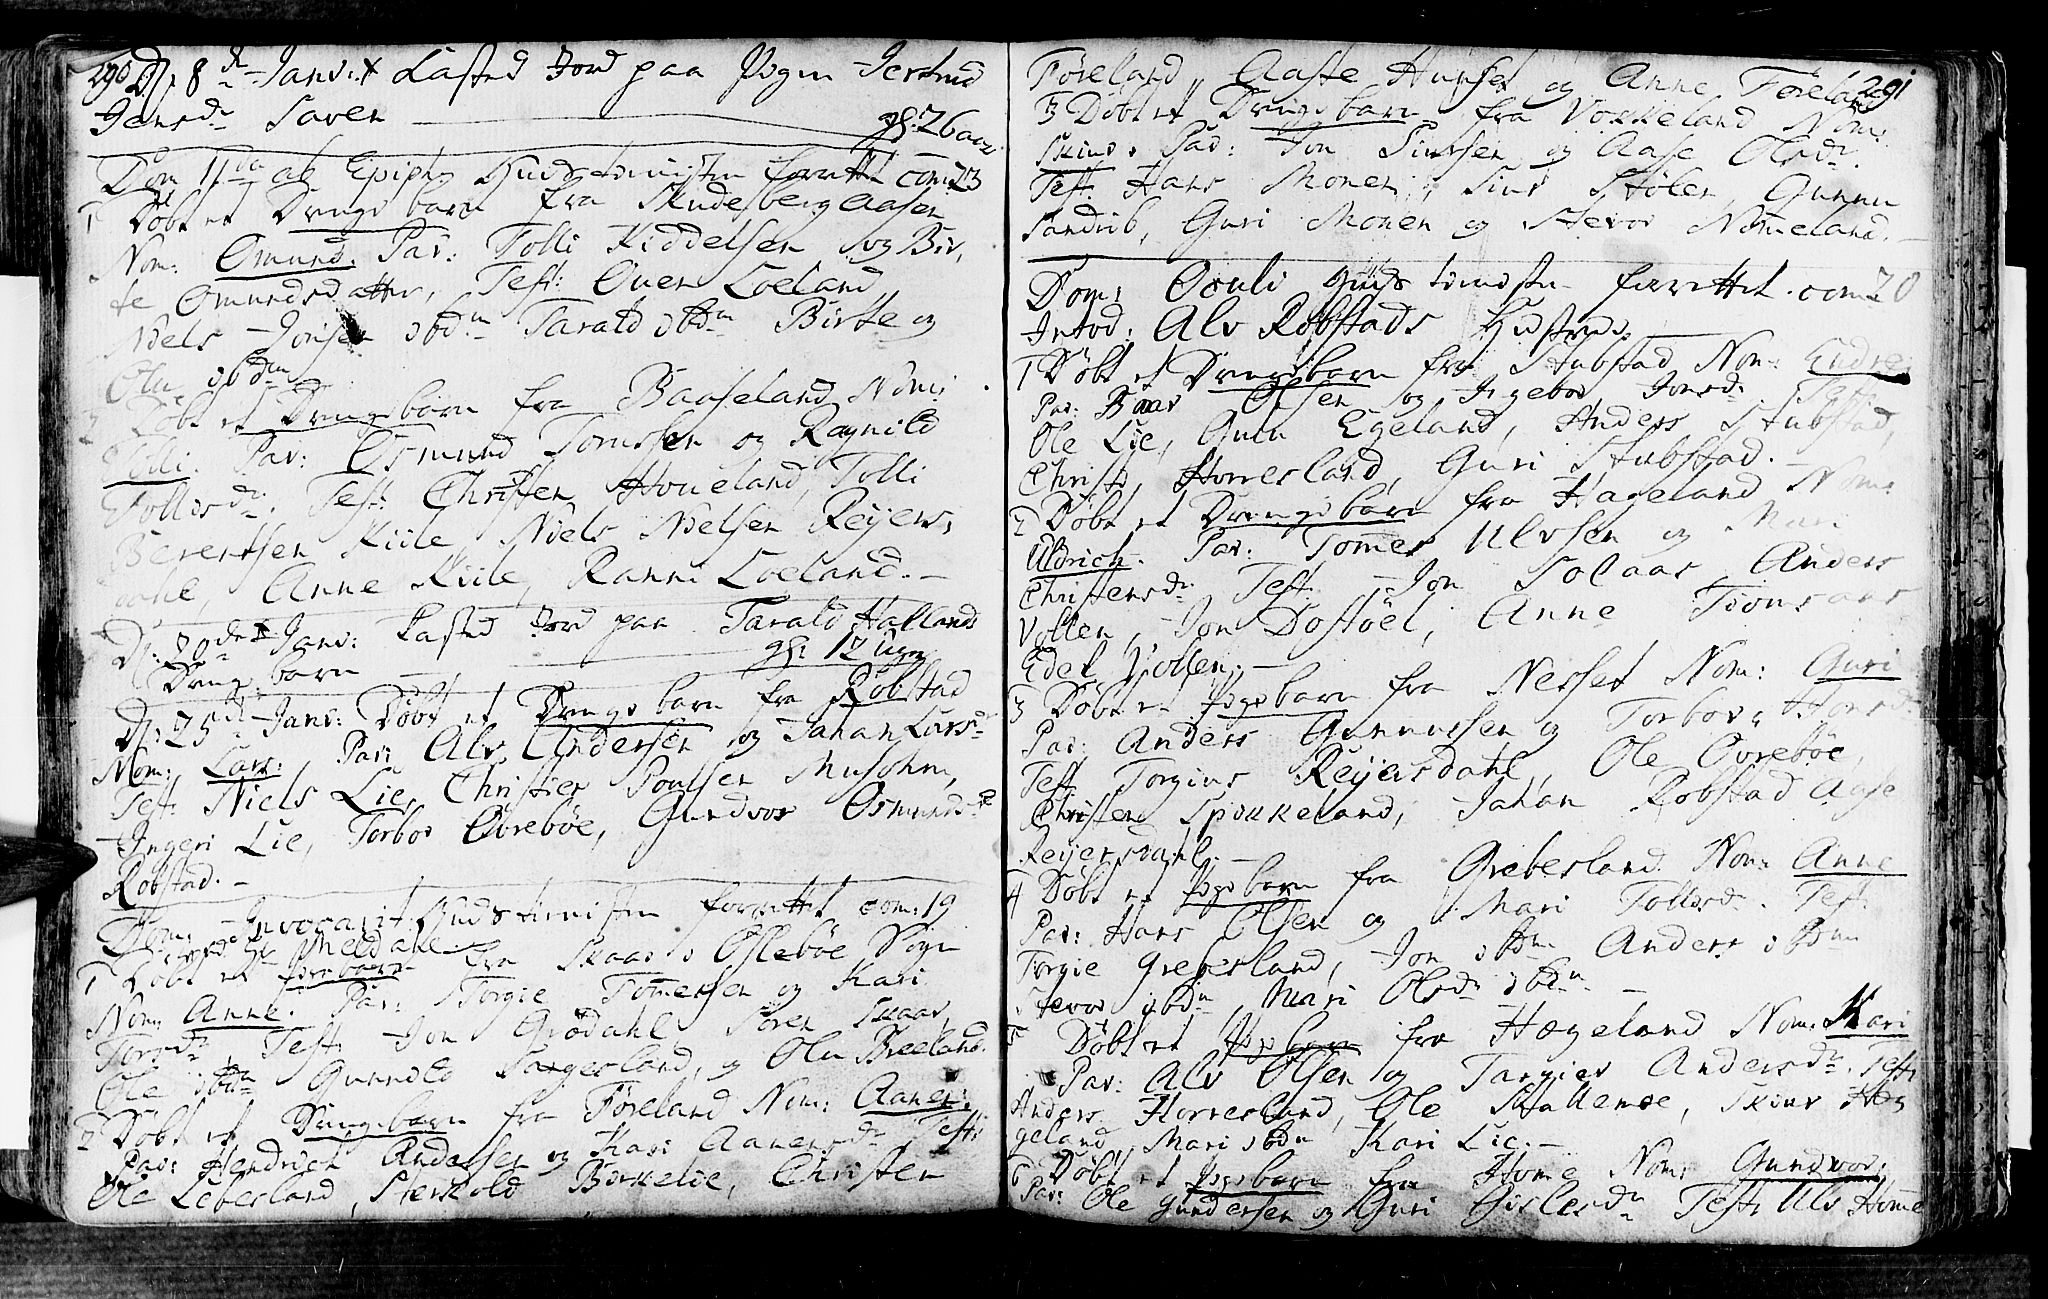 290 D: 8de Janv: Kasted Jord paa Pigen Jertrud
Jensdr Saven gl: 26 aar
Dom IIda ab Epiph: Gudstienisten forrettet com: 23
1 Döbt et Drengebarn fra Skudesberg aasen
Nom: Omund. Par: Tolli Kiddelsen og Bir,
te Omundsdatter, Test: Ouen Loeland
Niels Jonsen ibdm Tarald ibdm Birte og
Olu ibdm
2 Döbt et Drengebarn fra Baaseland Nom:
Tolli. Par: Osmund Tomssen og Ragnild
Tollisdr. Test: Christen Houeland, Tolli
Berentsen Kiile Niels Nielsen Reijers,
dahl, Anne Kiile, Ranni Loeland. —
D: 20de Janv: Kasted Jord paa Tarald Hallands
Drengebarn gl: 12 Uger
D: 25de Janv: Döbt et Drengebarn fra Robstad
Nom: Lars: Par: Alv Andersen og Johan Larsdr
Test: Niels Lie, Christen Poulsen Musohm,
Ingeri Lie, Torbor Övreböe, Gundvor Osmundsdr
Robstad. —
Dom: Invocavit Gudstienisten forrettet com: 19
ved Hr Meldahl
1 Döbt et Pigebarn fra Skaar i Öfleböe Sogn
Nom: Anne. Par: Torgie Tommersen og Kari
Torsdr, Test: Jon Grödahl, Sören Skaar
Ole ibdm Gunnild Sangesland, og Olu Breeland.
2 Döbt et Drengebarn fra Föreland Nom: Aanen:
Par: Hendrich Andersen og Kari Aanensdr Test:
Ole Lebesland, Sterkold Birkelie, Christen
291
Föreland, Aaste Hunset og Anne Föreland
3 Döbt et Drengebarn fra Vokkeland Nom:
Skiuv. Par: Jon Siursen og Aase Olsdr.
Test: Hans Monen, Siur Stölen, Gunnu
Sandrib, Guri Monen og Stevor Nömeland. —
Dom: Oculi Gudstienesten forrettet. com: 20
Introd: Alv Robstads Hustrue
1 Döbt et Drengebarn fra Stubstad Nom: Endre
Par: Boar Olsen og Ingebor Jonsdr. Test:
Ole Lie, Gunu Egeland, Anders Stubstad,
Christi Homesland, Guri Stubstad.
2 Döbt et Drengebarn fra Hageland Nom:
Uldrich. Par: Tommes Ulvsen og Mari
Christensdr Test: Jon Solaas Anders
Vollen, Jon Dostöel, Anne Tionsaas
Edel Vollen. —
3 Döbt et Pigebarn fra Nesset Nom: Guri
Par: Anders Gunnussen og Torbor Jonsdr
Test: Torgius Reijersdahl, Ole Övreböe,
Christen Spikkeland, Johan Robstad Aase
Reijersdahl. —
4 Döbt et Pigebarn fra Grebesland. Nom: Anne
Par: Hans Olsen og Mari Tollisdr. Test:
Torgie Grebesland, Jon ibdm Anders ibdm
Stevor ibdm, Mari Olsdr ibdm. —
5 Döbt et Pigebarn fra Hægeland Nom: Kari
Par: Alv Olsen og Targier Andersdr. Test:
Anders Homesland, Ole Stallemoe, Skiuv Hæg
geland, Mari ibdm Kari Lie. —
6 Döbt et Pigebarn fra Home Nom: Gundvor
Par: Ole Gundersen og Guri Gislesdr Test: Ulv Home